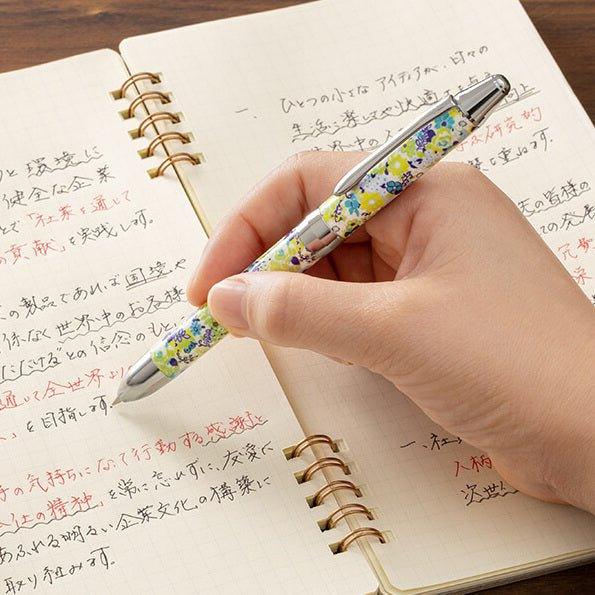 と環境に
健全な企業
とで「社業を通じて
の貢献」を実践します。
の製品であれば国境や
係なく世界中のお客様
ただける"との信念のもと
通じて全世界
を目指します。
の気持ちになって行動する感謝と
の精神」を常に忘れずに、友愛に
あふれる明るい企業文化の構築に
取り組みます。
一、ひとつの小さなアイディアが、日々の
生活に楽しさや快適さを
世界中の
研究的
を重ねます。
の皆様の
の発展
一、社
人柄
次世